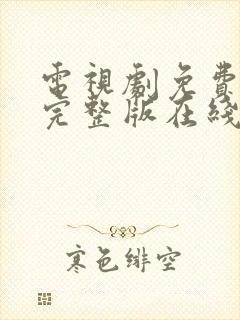 電視劇免費
完整版在綫
寒色緋空